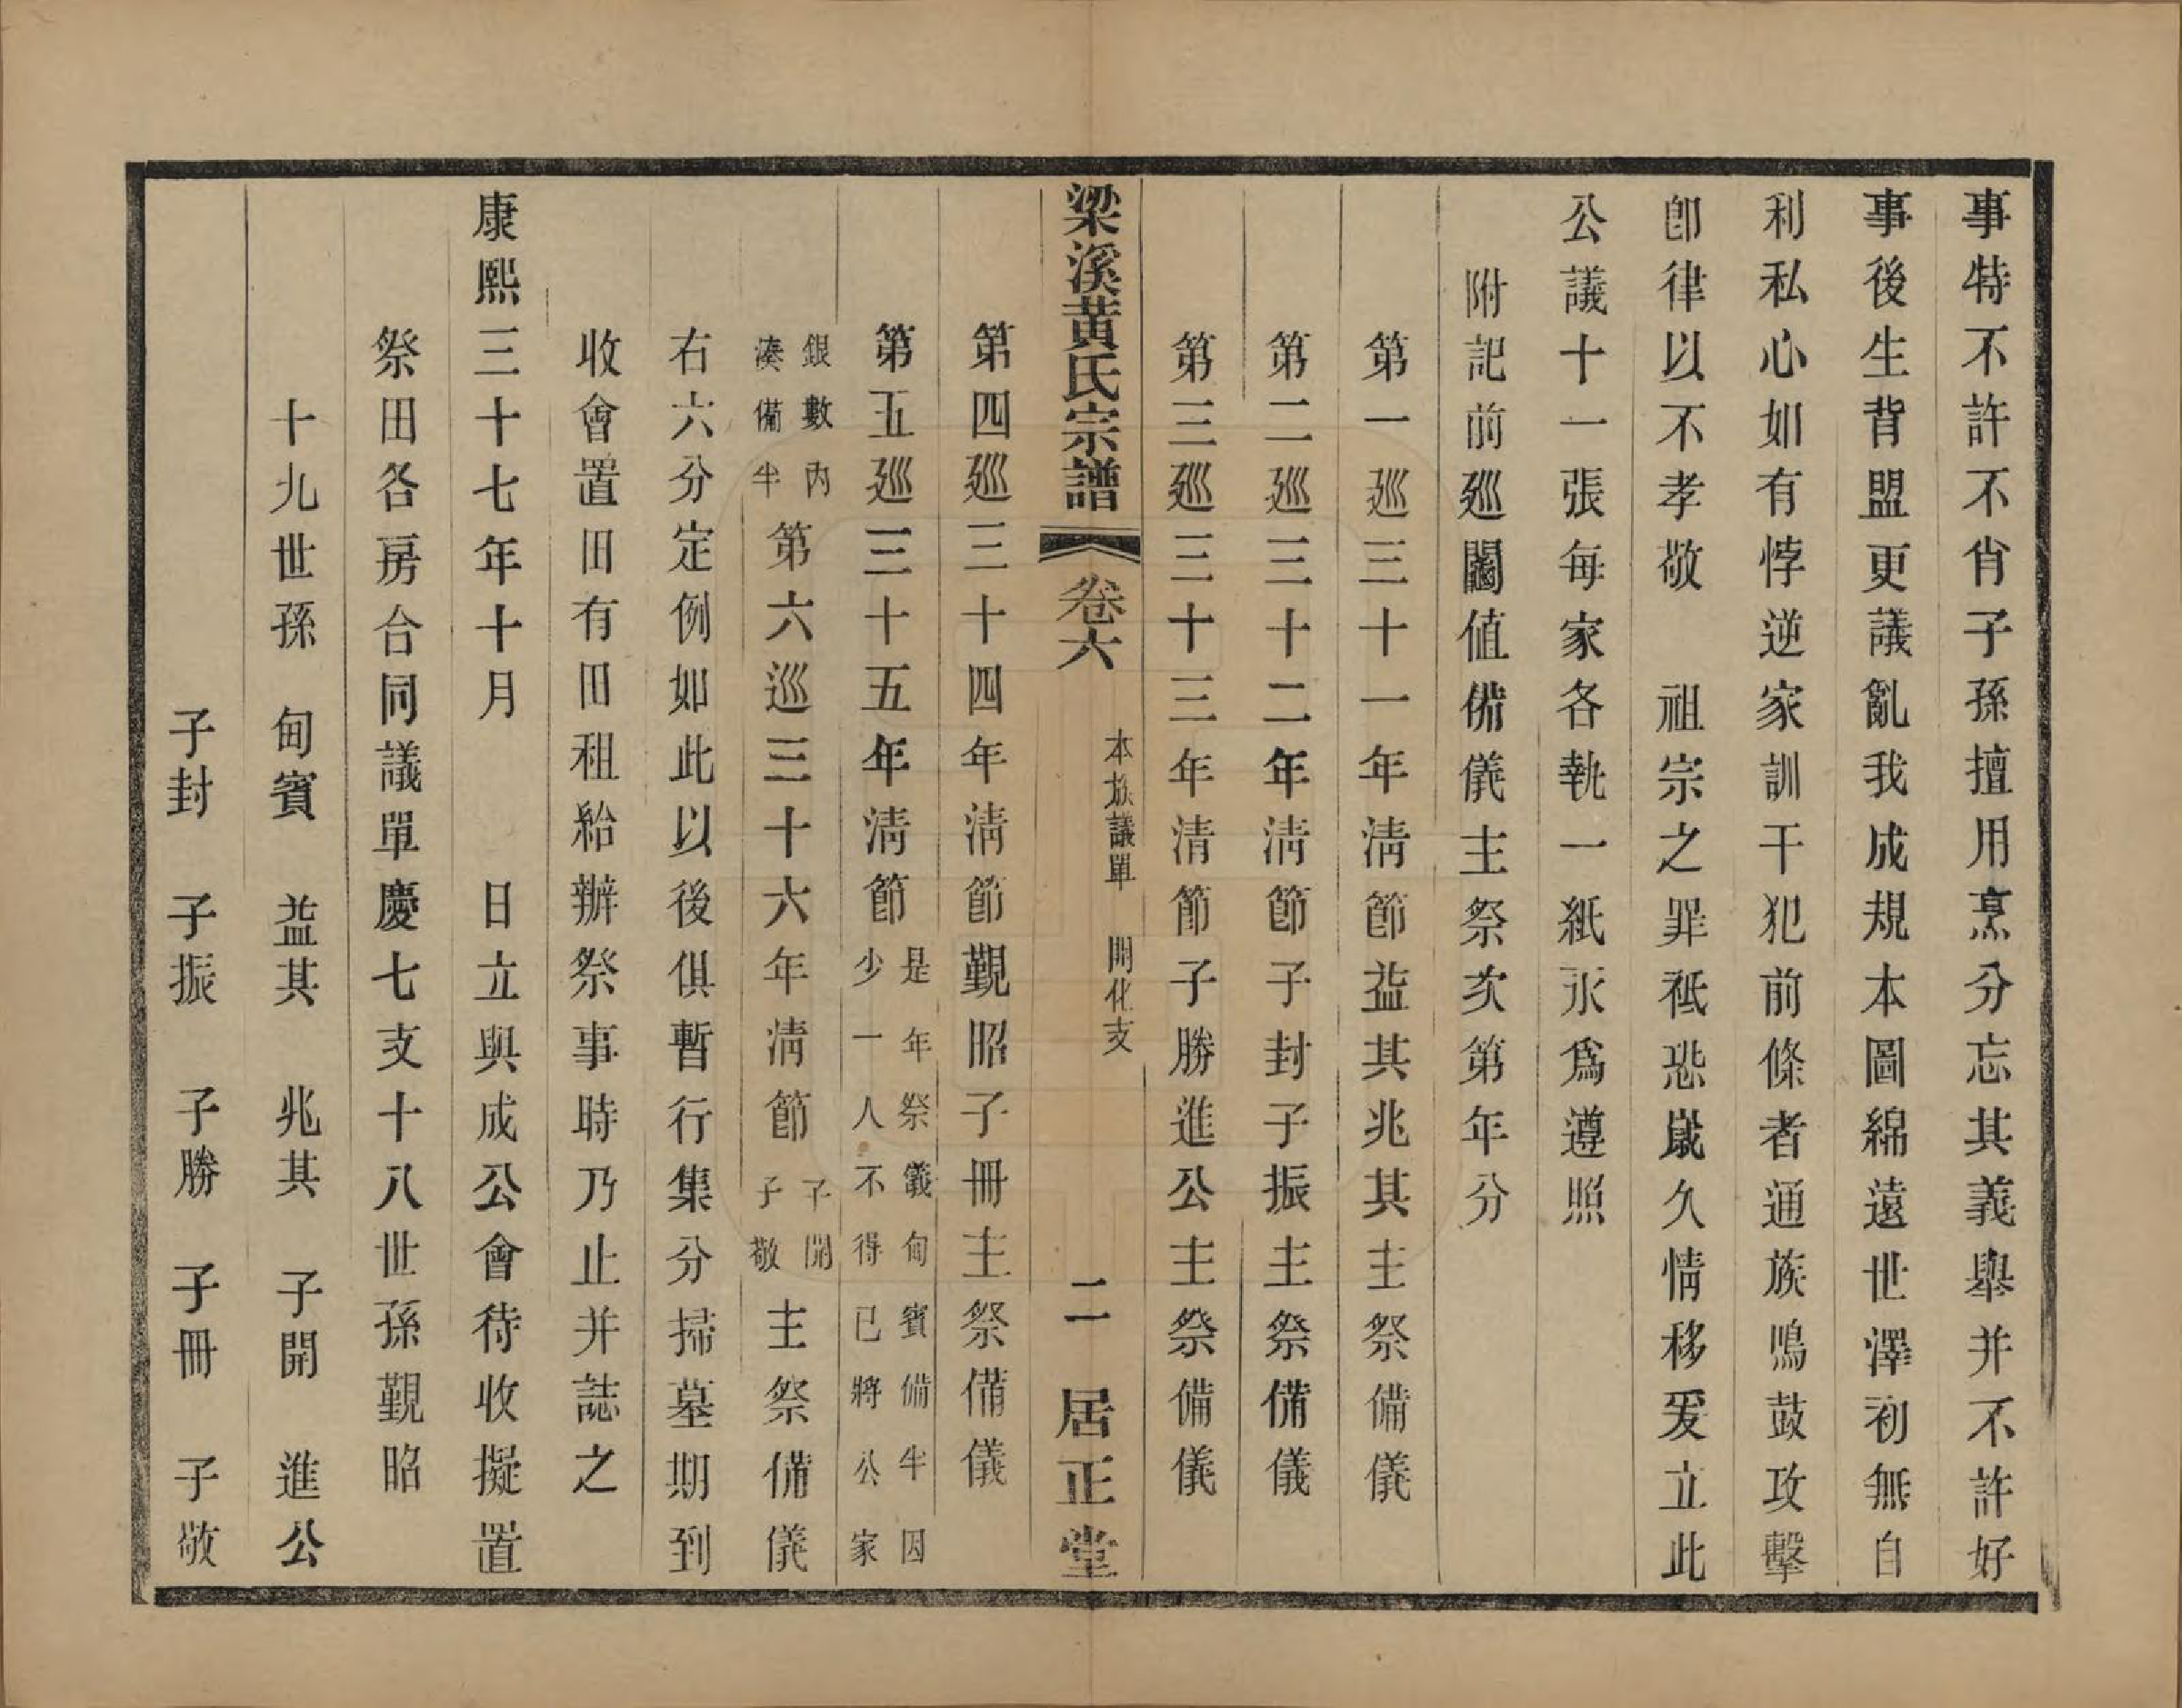 事特不許不肖子孫擅用烹分忘其義舉并不許好
事後生背盟更議亂我成規本圖綿遠世澤初無自
利私心如有悖逆家訓干犯前條者通族鳴鼓攻擊
卽律以不孝敬　祖宗之罪祗恐歲久情移爰立此
公議十一張每家各執一紙永爲遵照
附記前廵鬮値備儀主祭次第年分
第一廵三十一年淸節益其兆其主祭備儀
第二廵三十二年淸節子封子振主祭備儀
第三廵三十三年淸節子勝進公主祭備儀
梁溪黃氏宗譜　卷六　本族議單　開化支　二　居正堂
第四廵三十四年淸節觐昭子冊主祭備儀
第五廵三十五年淸節是年祭儀甸賓備半因
少一人不得已將公家
銀數內
湊備半第六巡三十六年淸節子開
子敬主祭備儀
右六分定例如此以後俱暫行集分掃墓期到
收會置田有田租給辦祭事時乃止并誌之
康熙三十七年十月　　日立與成公會待收擬置
祭田各房合同議單慶七支十八世孫觐昭
十九世孫　甸賓　益其　兆其　子開　進公
子封　子振　子勝　子冊　子敬